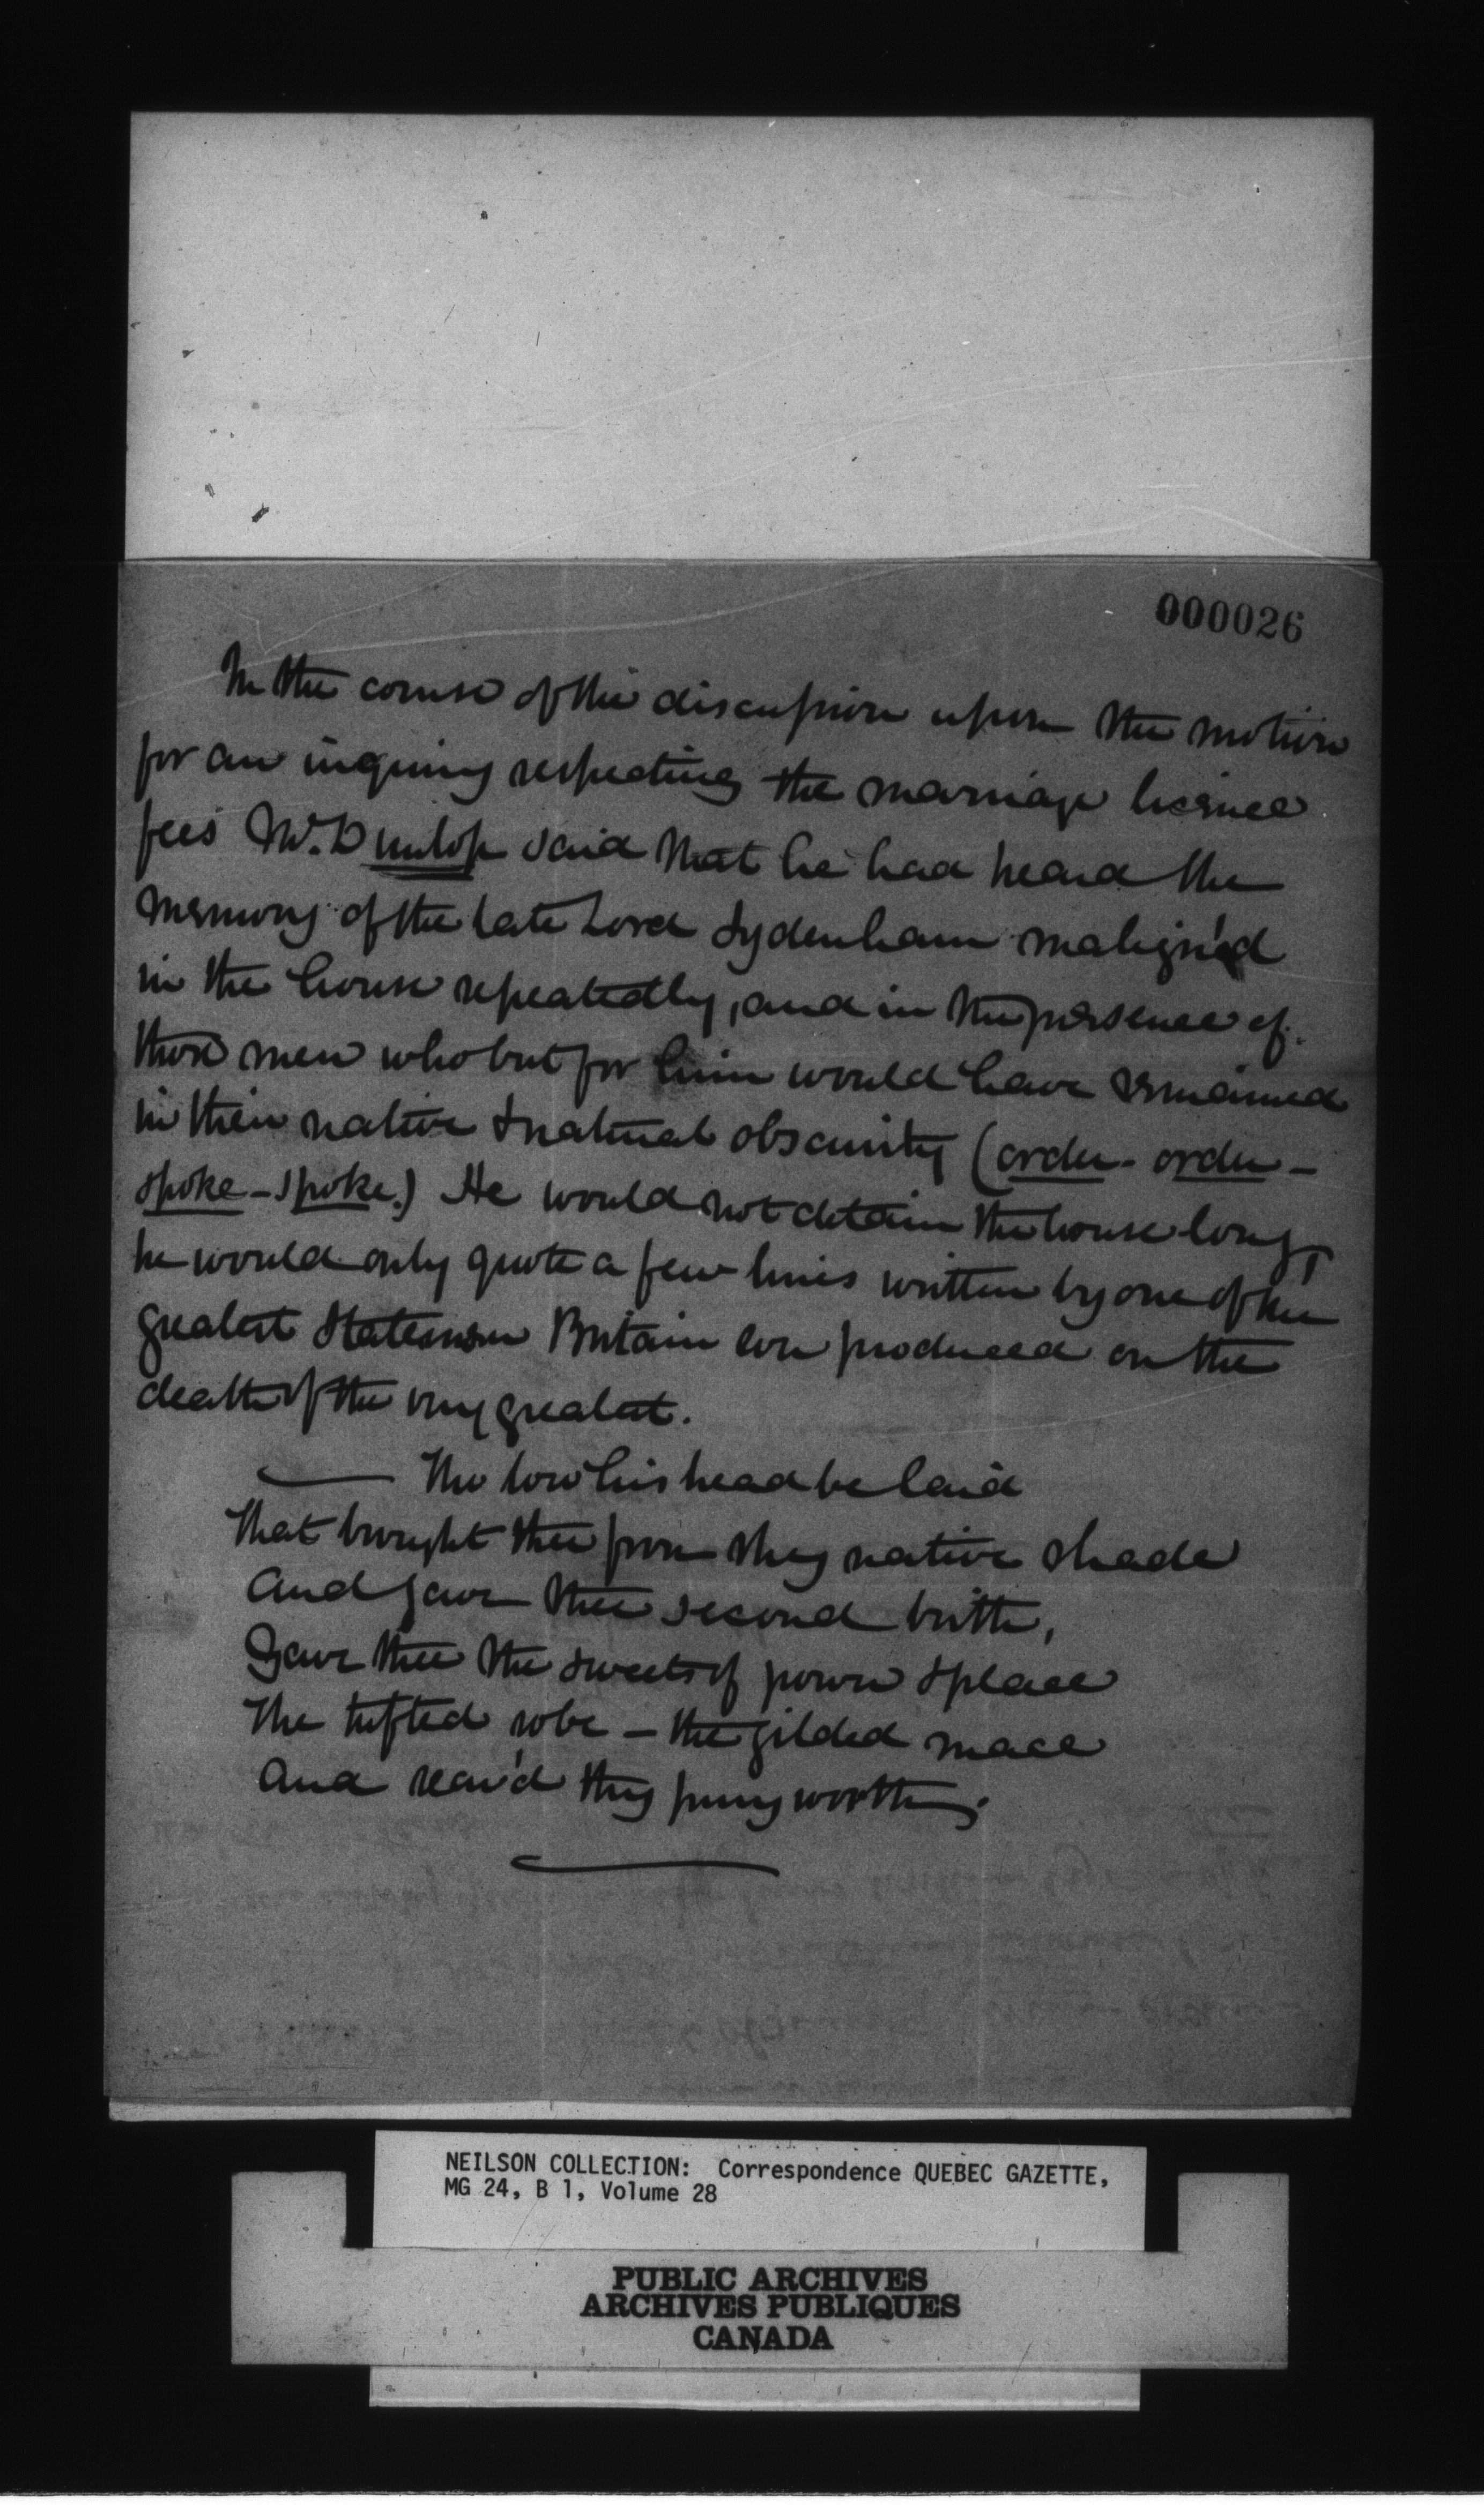 000026
In the course of the discussion upon the motion
for an inquiry respecting the marriage license
fees Mr. Dunlop said that he had heard the
memory of the late Lord Sydenham malign'd
in the house repeatedly, and in the presence of
those men who but for him would have remained
in their native & natural obscurity (order - order -
spoke - spoke.) He would not detain the house long,
he would only quote a few lines written by one of the
greatest Statesmen Britain ever produced on the
death of the very greatest.
— Tho low his head be laid
That brought thee from thy native shade
And gave thee second birth,
Gave thee the sweets of power & place
The tufted robe - the gilded mace
And rear'd thy puny worth.
NEILSON COLLECTION: Correspondence QUEBEC GAZETTE,
MG 24, B 1, Volume 28
PUBLIC ARCHIVES
ARCHIVES PUBLIQUES
CANADA